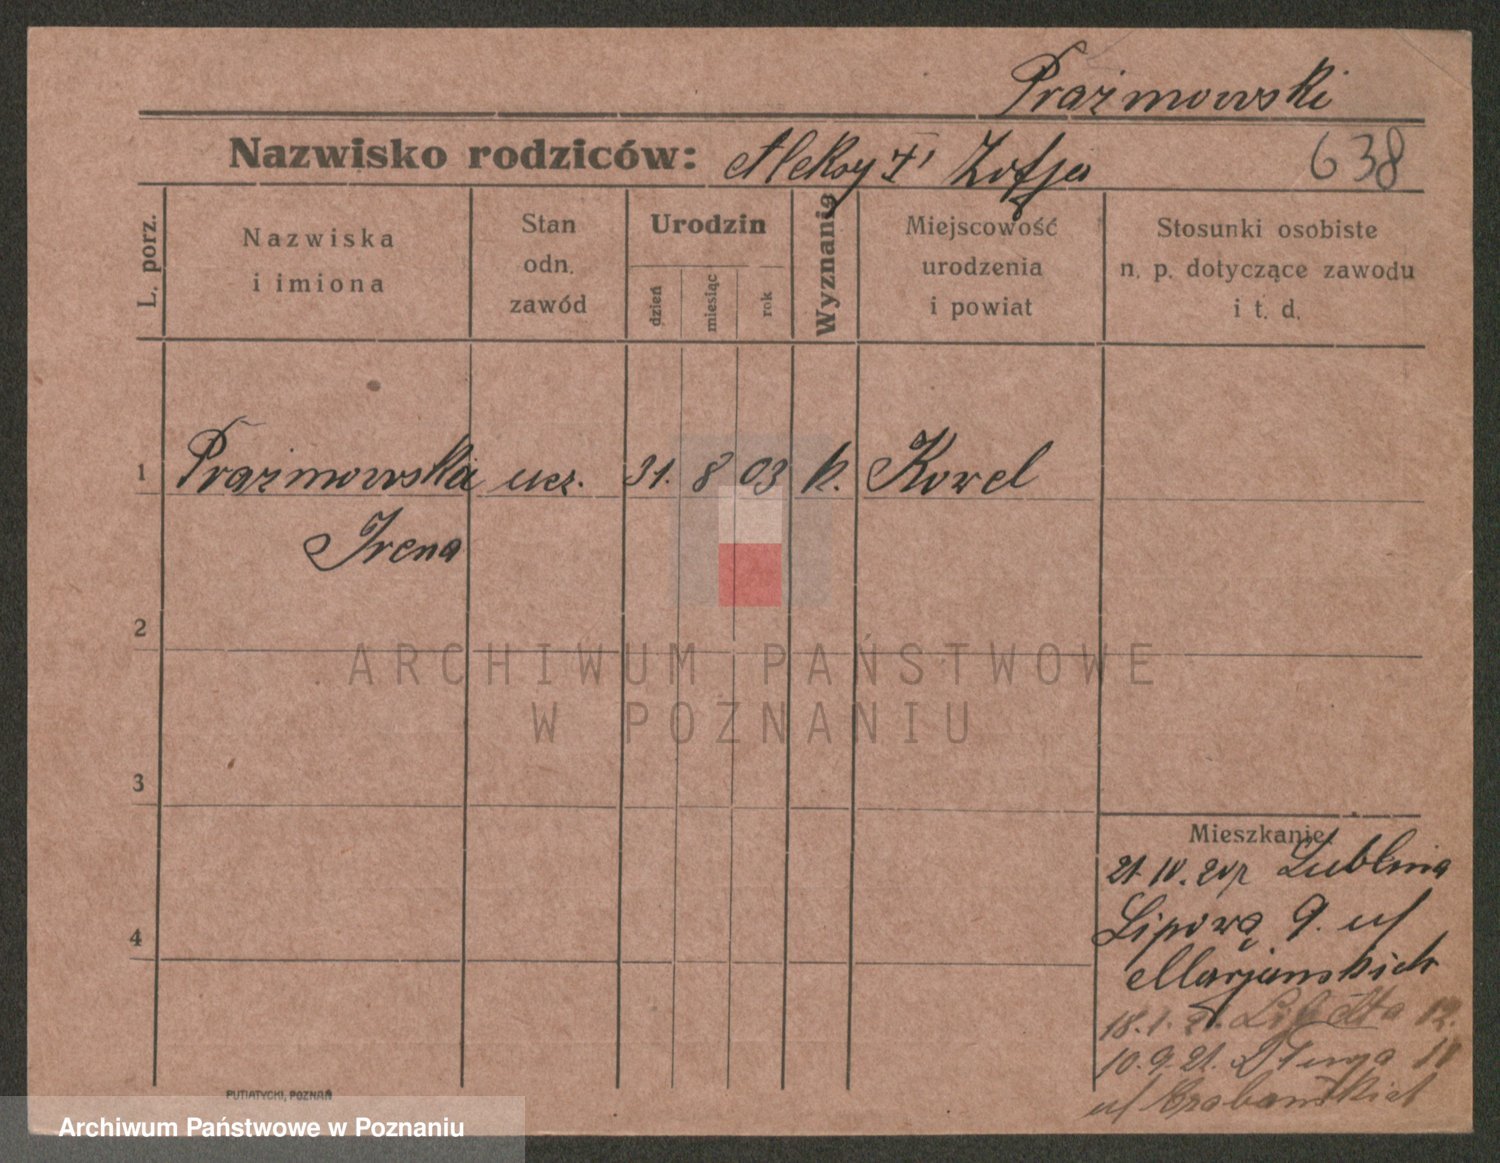 Prażmowski
Nazwisko rodziców: Aleksy † i Zofja 638
L. porz.
Nazwiska
i imiona
Stan
odn.
zawód
Urodzin
dzień
miesiąc
rok
Wyznanie
Miejscowość
urodzenia
i powiat
Stosunki osobiste
n. p. dotyczące zawodu
i t. d.
1 Prażmowska ucz. 31. 8 03 k. Kowel
Irena
2
3
4
Mieszkanie
21.IV. 20 z Lublina
Lipowa 9. u/
Marjańskich
18.1.21. 12.
10.9.21. Długa 11
u/
PUTIATYCKI, POZNAŃ
ARCHIWUM PAŃSTWOWE
W POZNANIU
Archiwum Państwowe w Poznaniu